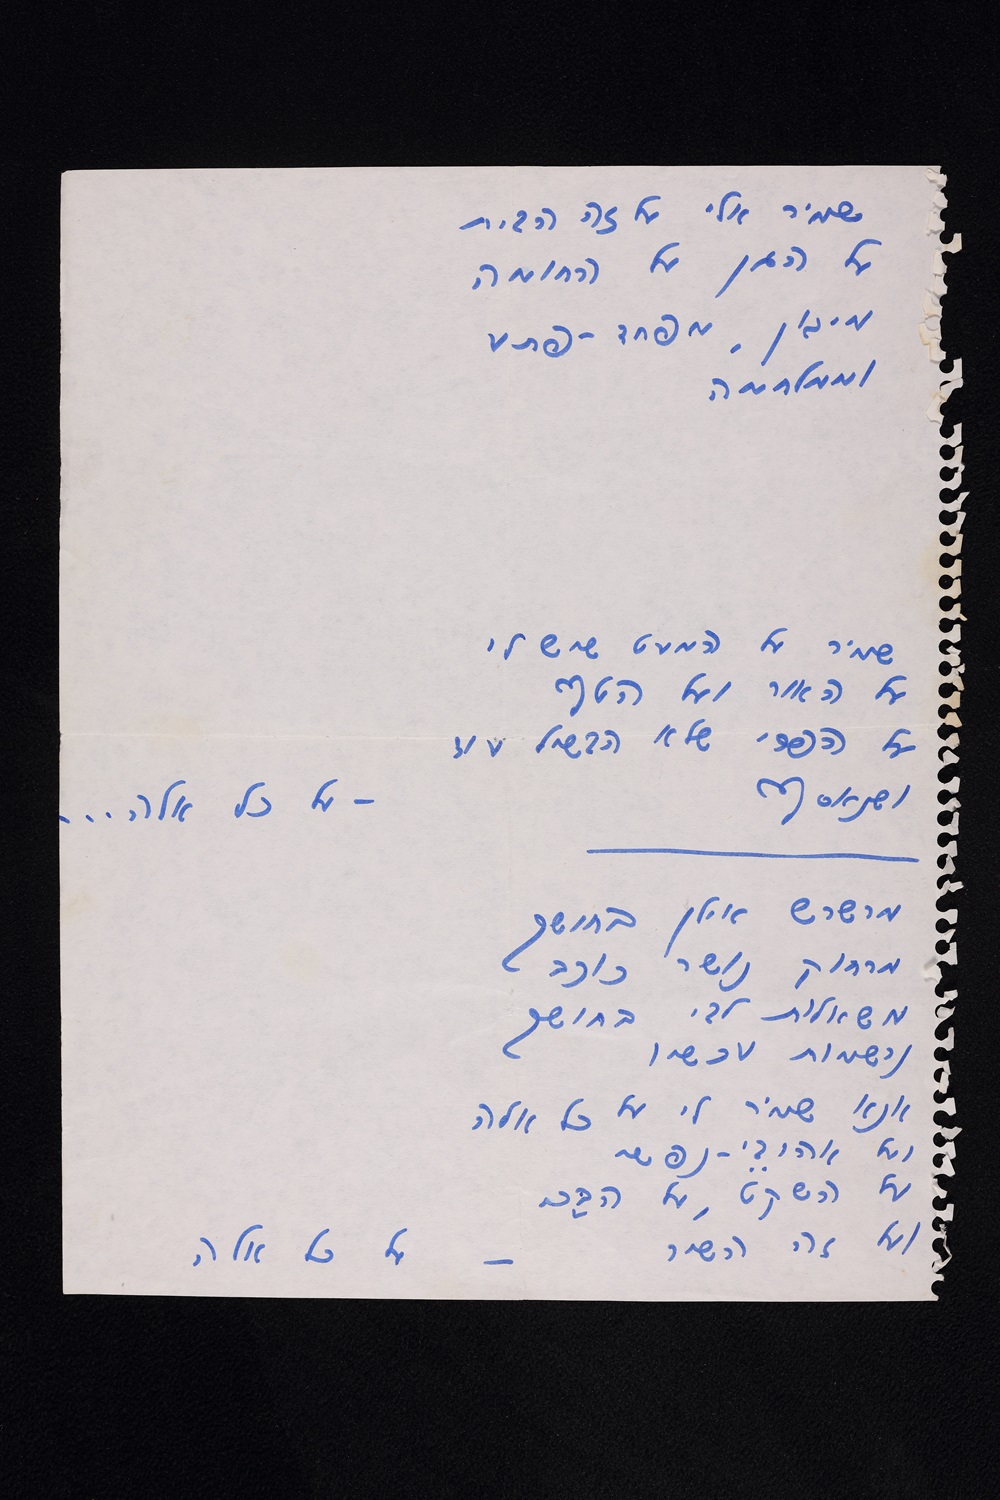 שמור אלי על זה הבית
על הגן על החומה
מיגון, מפחד-פתע
וממלחמה
שמור על המעט שיש לי
על האור ועל הטף
על הפרי שלא הבשיל עוד
ושנאסף
- על כל אלה...
מרשרש אילן בחושך
מרחוק נושר כוכב
משאלות לבי בחושך
נרשמות עכשיו
אנא שמור לי על כל אלה
ועל אהובי-נפשי
על השקט, על הבכי
ועל זה השיר - על כל אלה